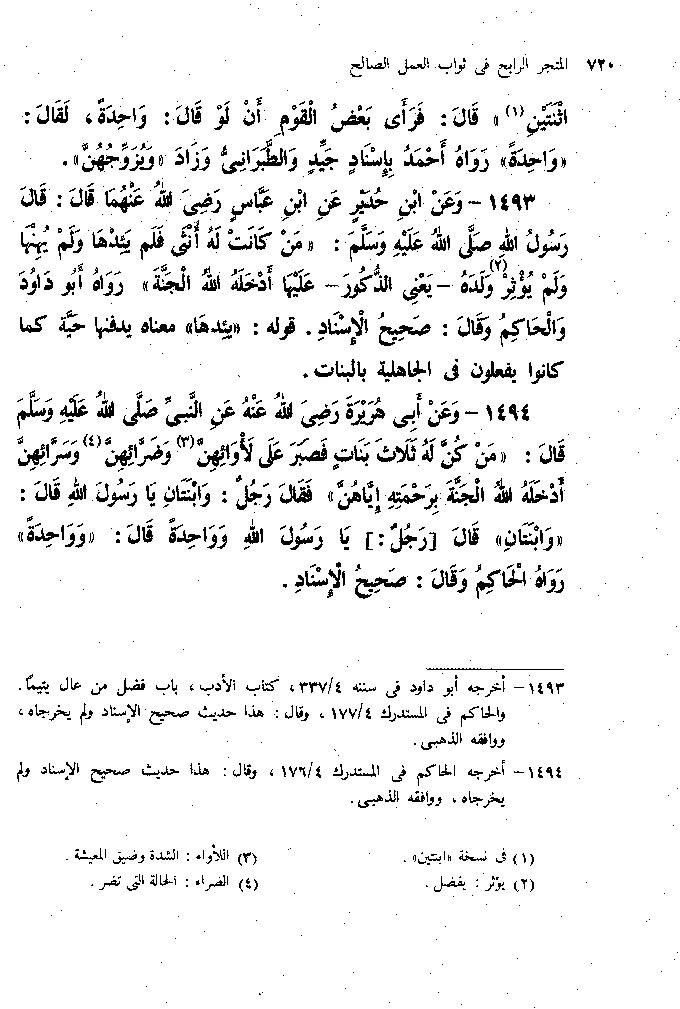 ٧٢٠ المتجر الرابح فى ثواب العمل الصالح
اثْنَتَيْنِ(١)» قَالَ: فَرَأَى بَعْضُ الْقَوْمِ أَنْ لَوْ قَالَ: وَاحِدَةً، لَقَالَ:
«وَاحِدَةً» رَوَاهُ أَحْمَدُ بِإِسْنَادٍ جَيِّدٍ وَالطَّبَرَانِىُّ وَزَادَ «وَيُزَوِّجُهُنَّ».
١٤٩٣ - وَعَنْ ابْنِ حُدَيْرٍ عَنِ ابْنِ عَبَّاسٍ رَضِىَ اللهُ عَنْهُمَا قَالَ: قَالَ
رَسُولُ اللهِ صَلَّى اللهُ عَلَيْهِ وَسَلَّمَ: «مَنْ كَانَتْ لَهُ أُنْثَى فَلَم يَئِدْهَا وَلَمْ يُهِنْهَا
وَلَمْ يُؤْثِرْ(٢) وَلَدَهُ -يَعْنِى الذُّكُورَ- عَلَيْهَا أَدْخَلَهُ اللهُ الْجَنَّةَ» رَوَاهُ أَبُو دَاوُدَ
وَالْحَاكِمُ وَقَالَ: صَحِيحُ الْإِسْنَادِ. قوله: «يَئِدهَا» معناه يدفنها حَيَّة كما
كانوا يفعلون فى الجاهلية بالبنات.
١٤٩٤ - وَعَنْ أَبِى هُرَيْرَةَ رَضِىَ اللهُ عَنْهُ عَنِ النَّبِىِّ صَلَّى اللهُ عَلَيْهِ وَسَلَّمَ
قَالَ: «مَنْ كُنَّ لَهُ ثَلَاثَ بَنَاتٍ فَصَبَرَ عَلَى لَأْوَائِهِنَّ(٣) وَضَرَّائِهِنَّ(٤) وَسَرَّائِهِنَّ
أَدْخَلَهُ اللهُ الْجَنَّةَ بِرَحْمَتِهِ إِيَّاهُنَّ» فَقَالَ رَجُلٌ: وَابْنَتَانِ يَا رَسُولَ اللهِ قَالَ:
«وَابْنَتَانِ» قَالَ [رَجُلٌ:] يَا رَسُولَ اللهِ وَوَاحِدَةً قَالَ: «وَوَاحِدَةً»
رَوَاهُ الْحَاكِمُ وَقَالَ: صَحِيحُ الْإِسْنَادِ.
١٤٩٣ - أخرجه أبو داود فى سننه ٣٣٧/٤، كتاب الأدب، باب فضل من عال يتيمًا.
والحاكم فى المستدرك ١٧٧/٤، وقال: هذا حديث صحيح الإسناد ولم يخرجاه،
ووافقه الذهبى.
١٤٩٤ - أخرجه الحاكم فى المستدرك ١٧٦/٤، وقال: هذا حديث صحيح الإسناد ولم
يخرجاه، ووافقه الذهبى.
(١) فى نسخة «ابنتين». (٣) اللأواء: الشدة وضيق المعيشة.
(٢) يؤثر: يفضل. (٤) الضراء: الحالة التى تضر.